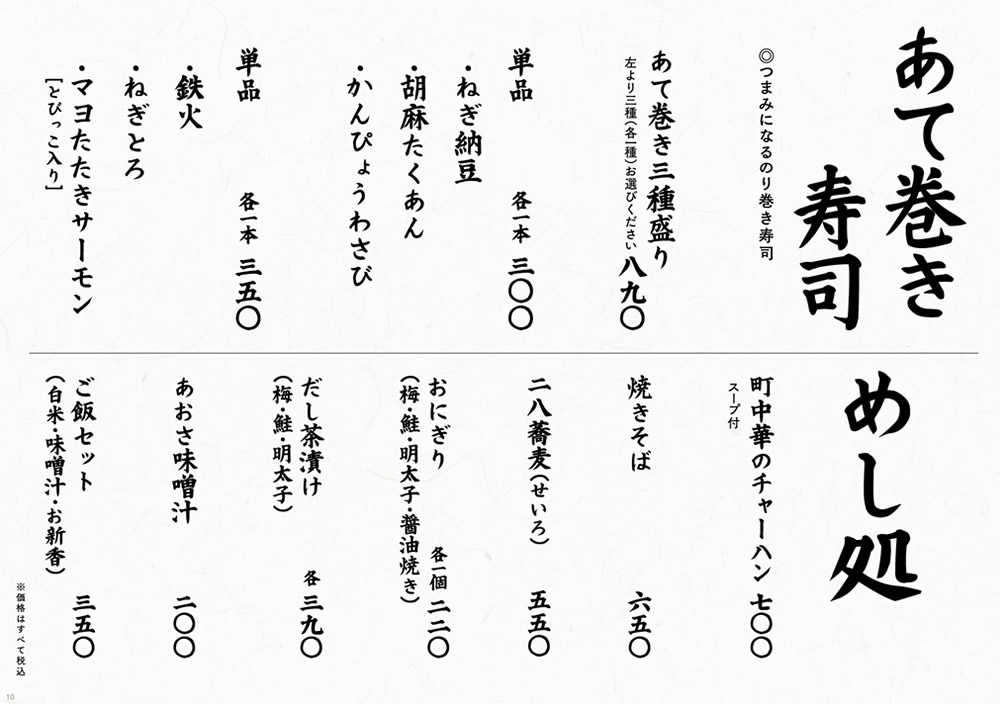 あて巻き
寿司
◎つまみになるのり巻き寿司
あて巻き三種盛り 八九〇
左より三種(各一種)お選びください
単品 各一本 三〇〇
・ねぎ納豆
・胡麻たくあん
・かんぴょうわさび
単品 各一本 三五〇
・鉄火
・ねぎとろ
・マヨたたきサーモン
[とびっこ入り]
めし処
町中華のチャーハン 七〇〇
スープ付
焼きそば 六五〇
二八蕎麦(せいろ) 五五〇
おにぎり 各一個 二二〇
(梅・鮭・明太子・醤油焼き)
だし茶漬け 各 三九〇
(梅・鮭・明太子)
あおさ味噌汁 二〇〇
ご飯セット 三五〇
(白米・味噌汁・お新香)
※価格はすべて税込
10